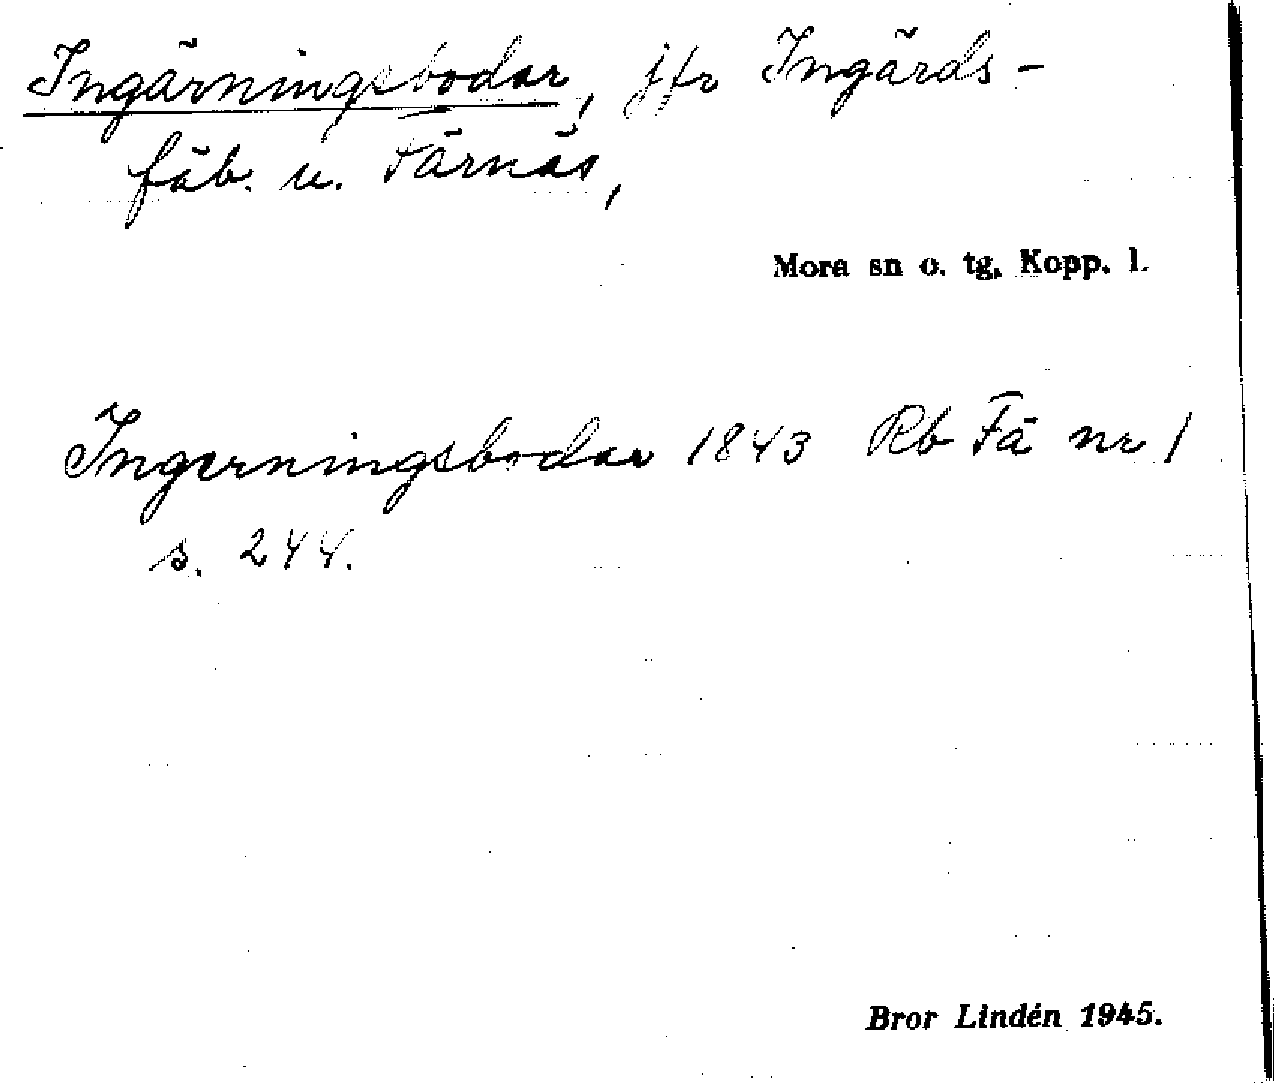 Ingärningsbodar, jfr Ingärds-
fäb. u. Färnäs,
Mora sn o. tg. Kopp. l.
Ingerningsbodar 1843 Rb Fä nr 1
s. 244.
Bror Lindén 1945.